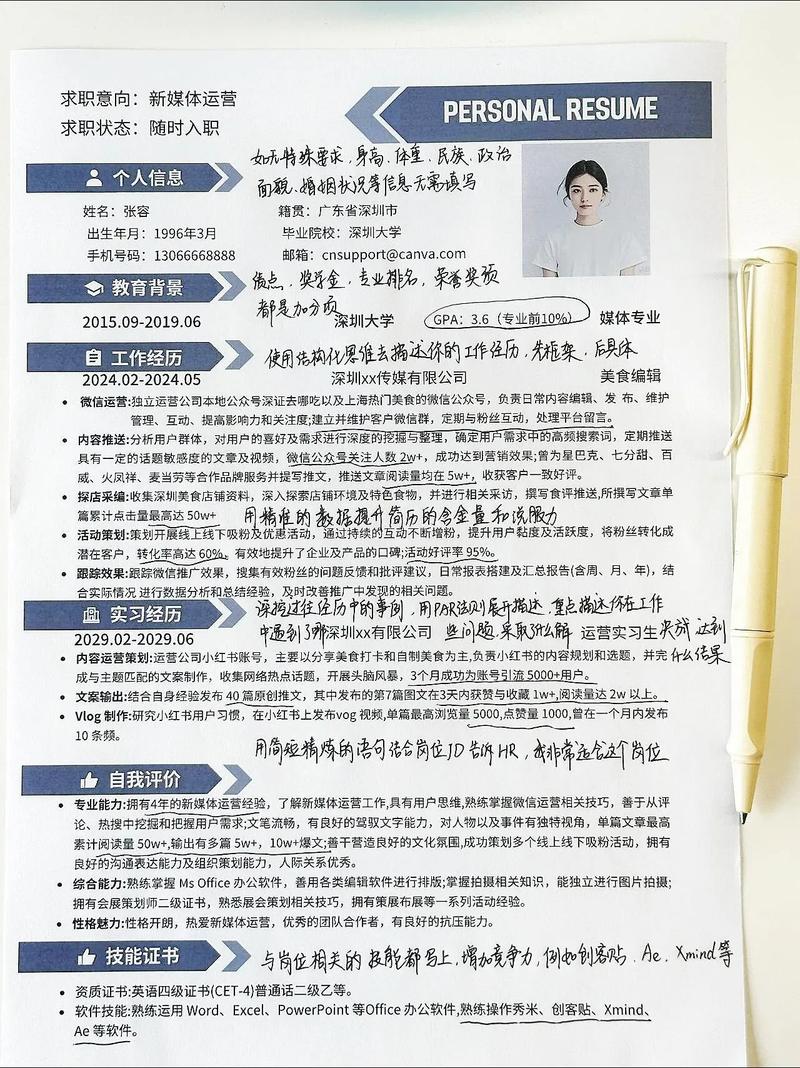 求职意向：新媒体运营
求职状态：随时入职
PERSONAL RESUME
如无特殊要求、身高、体重、民族、政治
面貌、婚姻状况等信息无需填写
个人信息
姓名：张容 籍贯：广东省深圳市
出生年月：1996年3月 毕业院校：深圳大学
手机号码：13066668888 邮箱：cnsupport@canva.com
教育背景
绩点、奖学金、专业排名、荣誉奖项
都是加分项
2015.09-2019.06 深圳大学 GPA：3.6（专业前10%） 媒体专业
工作经历
使用结构化思维去描述你的工作经历，先框架、后具体
2024.02-2024.05 深圳xx传媒有限公司 美食编辑
• 微信运营:独立运营公司本地公众号深证去哪吃以及上海热门美食的微信公众号，负责日常内容编辑、发 布、维护
管理、互动、提高影响力和关注度;建立并维护客户微信群，定期与粉丝互动，处理平台留言。
• 内容推送:分析用户群体，对用户的喜好及需求进行深度的挖掘与整理，确定用户需求中的高频搜索词，定期推送
具有一定的话题敏感度的文章及视频，微信公众号关注人数 2w+，成功达到营销效果;曾为星巴克、七分甜、百
威、火凤祥、麦当劳等合作品牌服务并提写推文，推送文章阅读量均在 5w+，收获客户一致好评。
• 探店采编:收集深圳美食店铺资料，深入探索店铺环境及特色食物，并进行相关采访，撰写食评推送,所撰写文章单
篇累计点击量最高达 50w+
用精准的数据提升简历的含金量和说服力
• 活动策划:策划开展线上线下吸粉及优惠活动，通过持续的互动不断增粉，提升用户黏度及活跃度，将粉丝转化成
潜在客户，转化率高达 60%。有效地提升了企业及产品的口碑;活动好评率 95%。
• 跟踪效果:跟踪微信推广效果，搜集有效粉丝的问题反馈和批评建议，日常报表搭建及汇总报告(含周、月、年)，结
合实际情况 进行数据分析和总结经验，及时改善推广中发现的相关问题。
实习经历
深挖过往经历中的事例，用PAR法则展开描述，重点描述你在工作
中遇到了哪些问题，采取了什么解决方法 达到
什么结果
2029.02-2029.06 深圳xx有限公司 运营实习生
• 内容运营策划:运营公司小红书账号，主要以分享美食打卡和自制美食为主,负责小红书的内容规划和选题，并完
成与主题匹配的文案制作，收集网络热点话题，开展头脑风暴，3个月成功为账号引流 5000+用户。
• 文案输出:结合自身经验发布 40 篇原创推文，其中发布的第7篇图文在3天内获赞与收藏 1w+,阅读量达 2w 以上。
• Vlog 制作:研究小红书用户习惯，在小红书上发布vog 视频,单篇最高浏览量 5000,点赞量 1000,曾在一个月内发布
10 条频。
用简短精炼的语句结合岗位JD告诉HR，我非常适合这个岗位
自我评价
• 专业能力:拥有4年的新媒体运营经验，了解新媒体运营工作,具有用户思维,熟练掌握微信运营相关技巧，善于从评
论、热搜中挖掘和把握用户需求;文笔流畅，有良好的驾驭文字能力，对人物以及事件有独特视角，单篇文章最高
素计阅读量 50w+,输出有多篇 5w+，10w+爆文;善干营造良好的文化氛围,成功策划多个线上线下吸粉活动，拥有
良好的沟通表达能力及组织策划能力，人际关系优秀。
• 综合能力:熟练掌握 Ms Office 办公软件，善用各类编辑软件进行排版;掌握拍摄相关知识，能独立进行图片拍摄;
拥有会展策划师二级证书，熟悉展会策划相关技巧，拥有策展布展等一系列活动经验。
• 性格魅力:性格开朗，热爱新媒体运营，优秀的团队合作者，有良好的抗压能力。
技能证书
与岗位相关的技能都写上，增加竞争力，例如创客贴、Ae、Xmind等
• 资质证书:英语四级证书(CET-4)普通话二级乙等。
• 软件技能:熟练运用 Word、Excel、PowerPoint 等Office 办公软件,熟练操作秀米、创客贴、Xmind、
Ae 等软件。